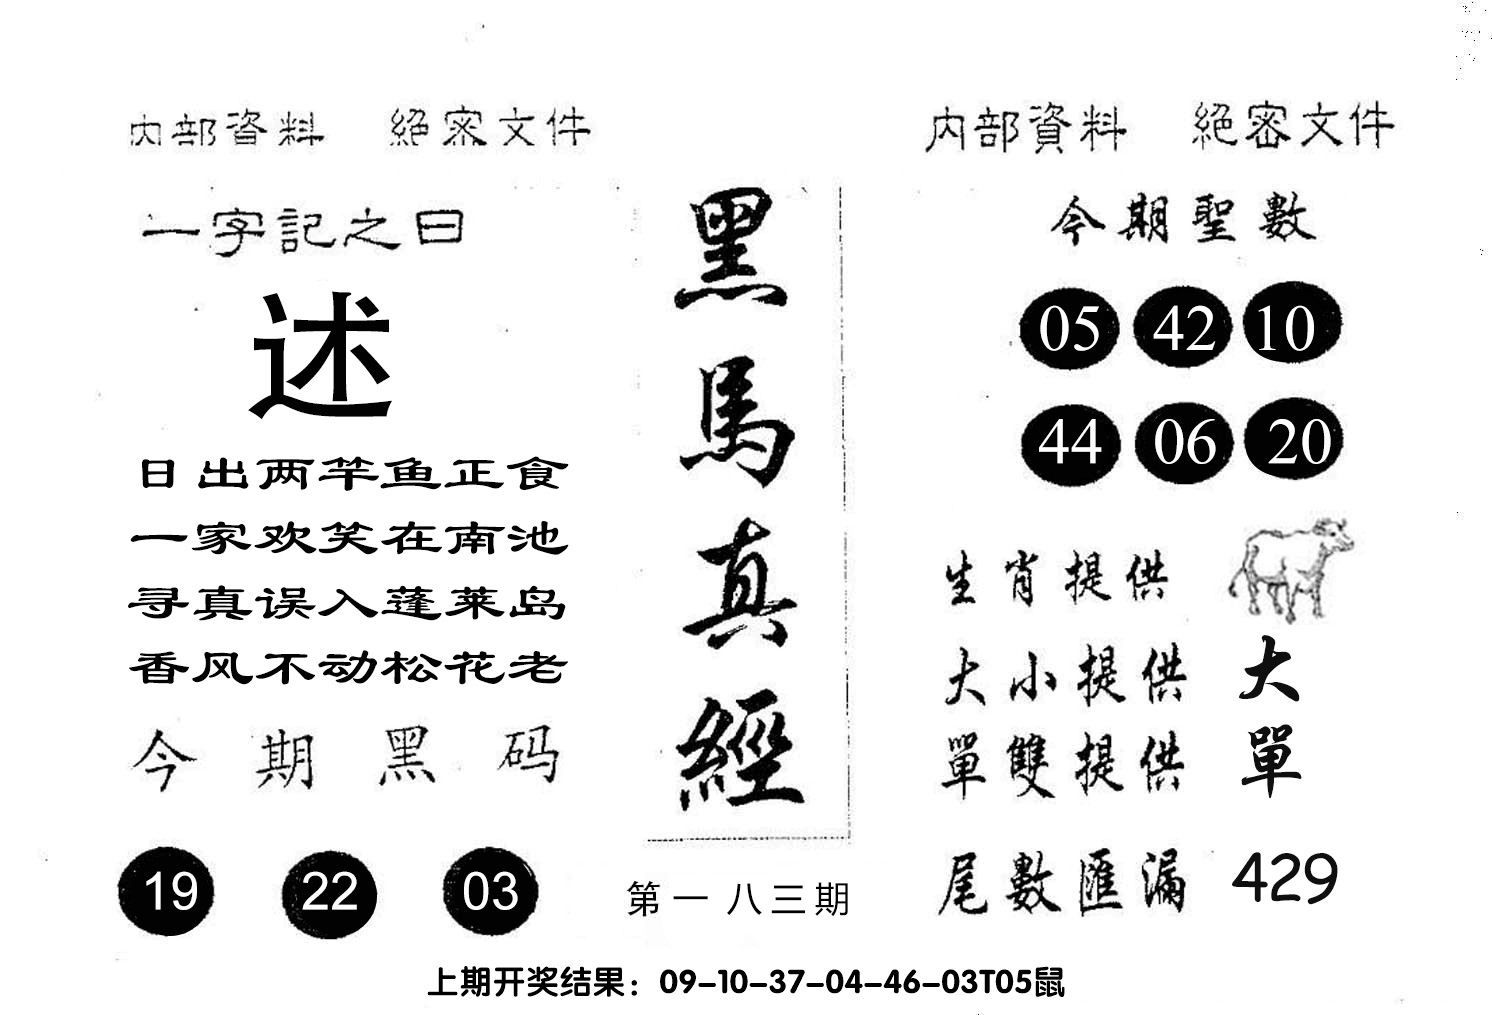 内部資料 絕密文件
一字記之曰
述
日出两竿鱼正食
一家欢笑在南池
寻真误入蓬莱岛
香风不动松花老
今期黑码
19 22 03
黑馬真經
第一八三期
内部資料 絕密文件
今期聖數
05 42 10
44 06 20
生肖提供
大小提供 大
單雙提供 單
尾數匯漏 429
上期开奖结果：09-10-37-04-46-03T05鼠